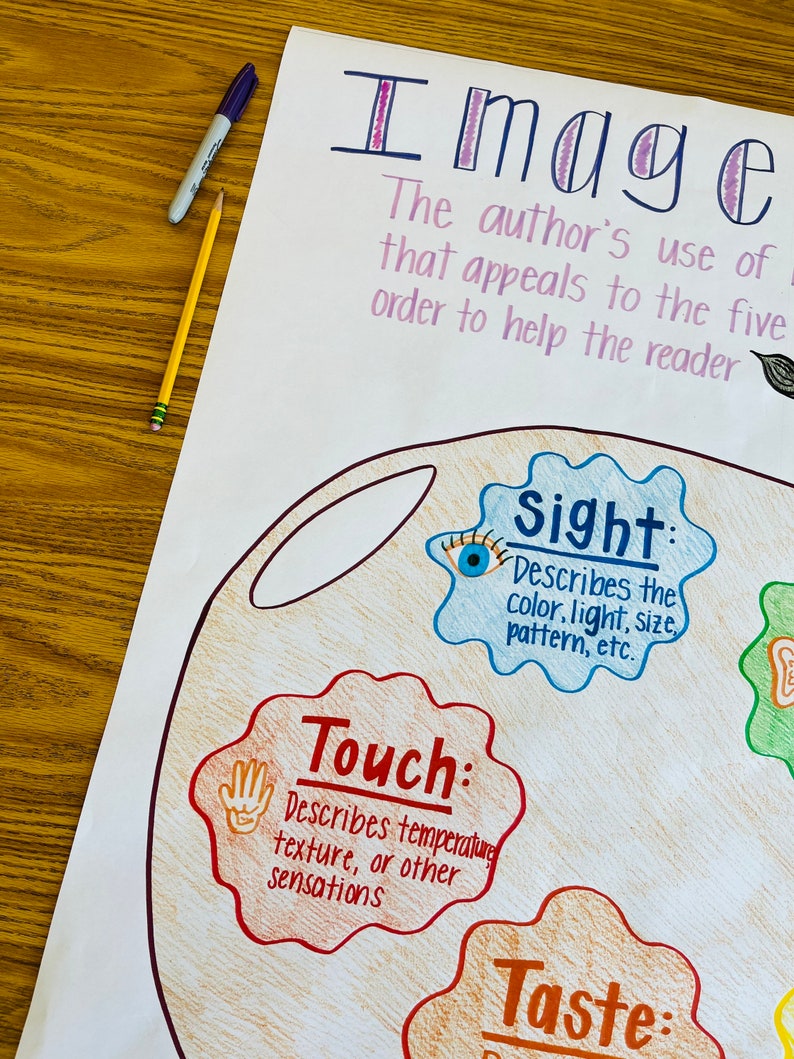 Image
The author's use of
that appeals to the five
order to help the reader
Sight:
Describes the
color, light, size,
pattern, etc.
Touch:
Describes temperature,
texture, or other
sensations
Taste: